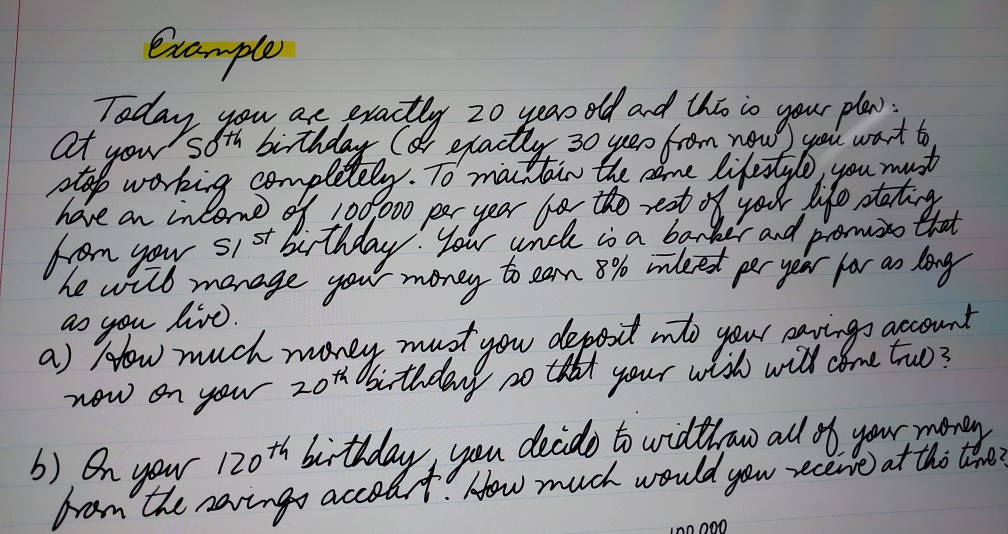 Example
Today you are exactly 20 years old and this is your plan:
At your 50th birthday (or exactly 30 years from now) you want to
stop working completely. To maintain the same lifestyle, you must
have an income of 100,000 per year for the rest of your life starting
from your 51st birthday. Your uncle is a banker and promises that
he will manage your money to earn 8% interest per year for as long
as you live.
a) How much money must you deposit into your savings account
now on your 20th birthday so that your wish will come true?
b) On your 120th birthday, you decide to widthraw all of your money
from the savings account. How much would you receive at this time?
100,000